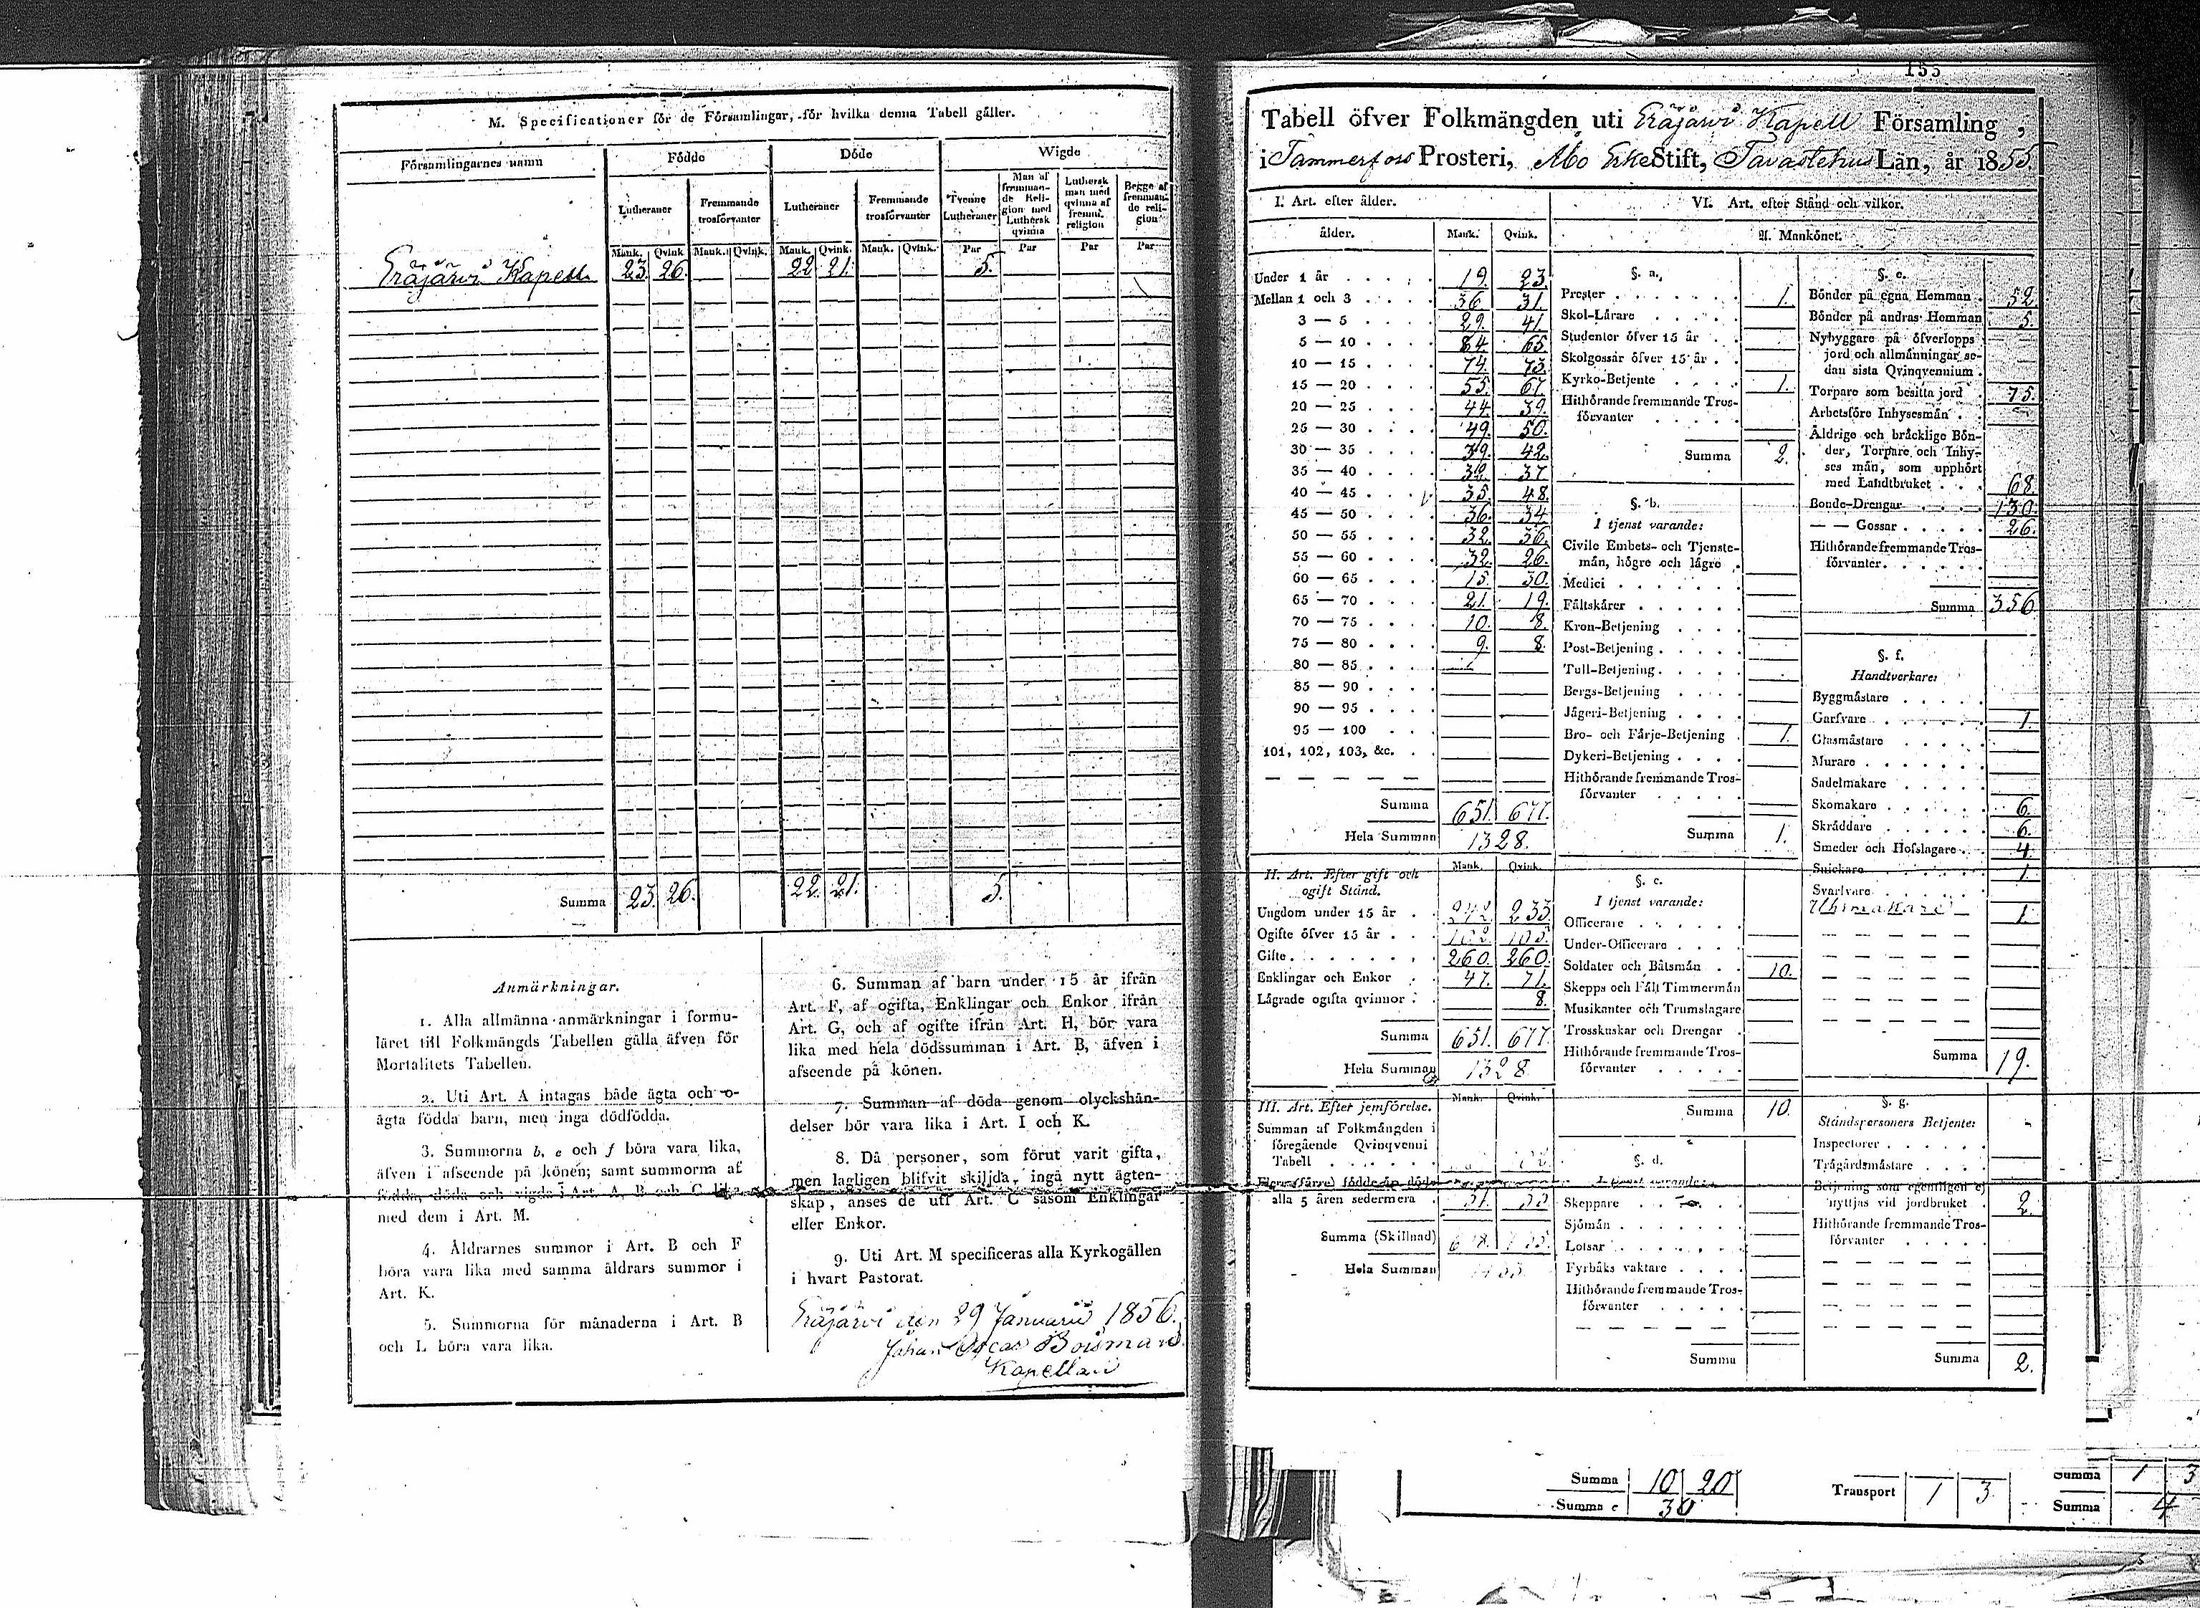 M. Specificationer för de Församlingar, för hvilka denna Tabell gäller.
Församlingarnes namn
Födde
Döde
Wigde
Lutheraner
Fremmande trosförvanter
Lutheraner
Fremmande trosförvanter
Tvenne Lutheraner
Man af fremmande Religion med Luthersk qvinna
Luthersk man med qvinna af fremm. religion
Begge af fremmande religion
Mank. Qvink. Mank. Qvink. Mank. Qvink. Mank. Qvink. Par Par Par Par
Eräjärvi Kapell 23. 26. 22 21. 5.
Summa 23. 26. 22. 21. 5.
Anmärkningar.
1. Alla allmänna anmärkningar i formu-
läret till Folkmängds Tabellen gälla äfven för
Mortalitets Tabellen.
2. Uti Art. A intagas både ägta och o-
ägta födda barn, men inga dödfödda.
3. Summorna b, e och f böra vara lika,
äfven i afseende på könen; samt summorna af
födda, döda och vigda i Art. A, B och C lika
med dem i Art. M.
4. Åldrarnes summor i Art. B och F
böra vara lika med samma åldrars summor i
Art. K.
5. Summorna för månaderna i Art. B
och L böra vara lika.
6. Summan af barn under 15 år ifrån
Art. F, af ogifta, Enklingar och Enkor ifrån
Art. G, och af ogifte ifrån Art. H, bör vara
lika med hela dödssumman i Art. B, äfven i
afseende på könen.
7. Summan af döda genom olyckshän-
delser bör vara lika i Art. I och K.
8. Då personer, som förut varit gifta,
men lagligen blifvit skiljda, ingå nytt ägten-
skap, anses de uti Art. C såsom Enklingar
eller Enkor.
9. Uti Art. M specificeras alla Kyrkogällen
i hvart Pastorat.
Eräjärvi den 29 Januarii 1856.
Johan Oscar Boisman
Kapellan
155
Tabell öfver Folkmängden uti Eräjärvi Kapell Församling,
i Tammerfors Prosteri, Åbo Erke Stift, Tavastehus Län, år 1855.
I. Art. efter ålder.
ålder. Mank. Qvink.
Under 1 år 19. 23.
Mellan 1 och 3 36 31.
3 — 5 29. 41.
5 — 10 84 65.
10 — 15 74. 73.
15 — 20 55. 67.
20 — 25 44 39.
25 — 30 49. 50.
30 — 35 39. 42.
35 — 40 32. 37
40 — 45 35. 48.
45 — 50 36. 34
50 — 55 32. 36.
55 — 60 32. 26.
60 — 65 15. 30.
65 — 70 21. 19.
70 — 75 10. 8.
75 — 80 9. 8.
80 — 85
85 — 90
90 — 95
95 — 100
101, 102, 103, &c.
Summa 651. 677.
Hela Summan 1328.
Mank. Qvink.
II. Art. Efter gift och
ogift Stånd.
Ungdom under 15 år 242. 233.
Ogifte öfver 15 år 102. 105.
Gifte 260. 260.
Enklingar och Enkor 47. 71.
Lägrade ogifta qvinnor 8.
Summa 651. 677.
Hela Summan 1328
Mank. Qvink.
III. Art. Efter jemförelse.
Summan af Folkmängden i
föregående Qvinqvenni
Tabell
Flere (färre) födde än döde
alla 5 åren sedermera
Summa (Skillnad)
Hela Summan
VI. Art. efter Stånd och vilkor.
A. Mankönet.
§. a.
Prester 1.
Skol-Lärare
Studenter öfver 15 år
Skolgossar öfver 15 år
Kyrko-Betjente 1.
Hithörande fremmande Tros-
förvanter
Summa 2.
§. b.
I tjenst varande:
Civile Embets- och Tjenste-
män, högre och lägre
Medici
Fältskärer
Kron-Betjening
Post-Betjening
Tull-Betjening
Bergs-Betjening
Jägeri-Betjening
Bro- och Färje-Betjening 1.
Dykeri-Betjening
Hithörande fremmande Tros-
förvanter
Summa 1.
§. c.
I tjenst varande:
Officerare
Under-Officerare
Soldater och Båtsmän 10.
Skepps och Fält Timmermän
Musikanter och Trumslagare
Trosskuskar och Drengar
Hithörande fremmande Tros-
förvanter
Summa 10.
§. d.
I tjenst varande:
Skeppare
Sjömän
Lotsar
Fyrbåks vaktare
Hithörande fremmande Tros-
förvanter
Summa
§. e.
Bönder på egna Hemman 52
Bönder på andras Hemman 5.
Nybyggare på öfverlopps
jord och allmänningar se-
dan sista Qvinqvennium
Torpare som besitta jord 75.
Arbetsföre Inhysesmän
Åldrige och bräcklige Bön-
der, Torpare och Inhy-
ses män, som upphört
med Landtbruket 68.
Bonde-Drengar 130.
— — Gossar 26.
Hithörande fremmande Tros-
förvanter
Summa 356
§. f.
Handtverkare:
Byggmästare
Garfvare 1.
Glasmästare
Murare
Sadelmakare
Skomakare 6.
Skräddare 6.
Smeder och Hofslagare 4.
Snickare 1.
Svarfvare
Uhrmakare 1.
Summa 19.
§. g.
Ståndspersoners Betjente:
Inspectorer
Trägårdsmästare
Betjening som egentligen ej
nyttjas vid jordbruket 2.
Hithörande fremmande Tros-
förvanter
Summa 2.
Summa 10 20
Summa e 30
Transport 1 3
Summa 1 3
Summa 4